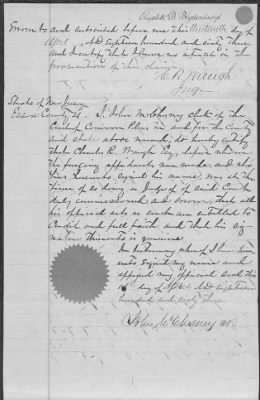 Elizabeth B.
Sworn to and subscribed before me this thirteenth day of
April AD Eighteen hundred and sixty three
and I certify that I have no interest in the
prosecution of this claim
C R Waugh
Judge
State of New Jersey
Essex County Ss. I, John McChesney clerk of the
Court of Common Pleas in and for the County
and State above named, do hereby certify
that Charles R. Waugh Esq, before whom
the foregoing affidavits were made and who
has thereunto signed his name, was at the
time of so doing a Judge of said Court
duly commissioned and sworn, that all
his official acts as such are entitled to
credit and full faith and that his sig
nature thereunto is genuine
In testimony whereof I have here
unto signed my name and
affixed my official seal this
day of April AD eighteen
hundred and sixty three
John McChesney Clk